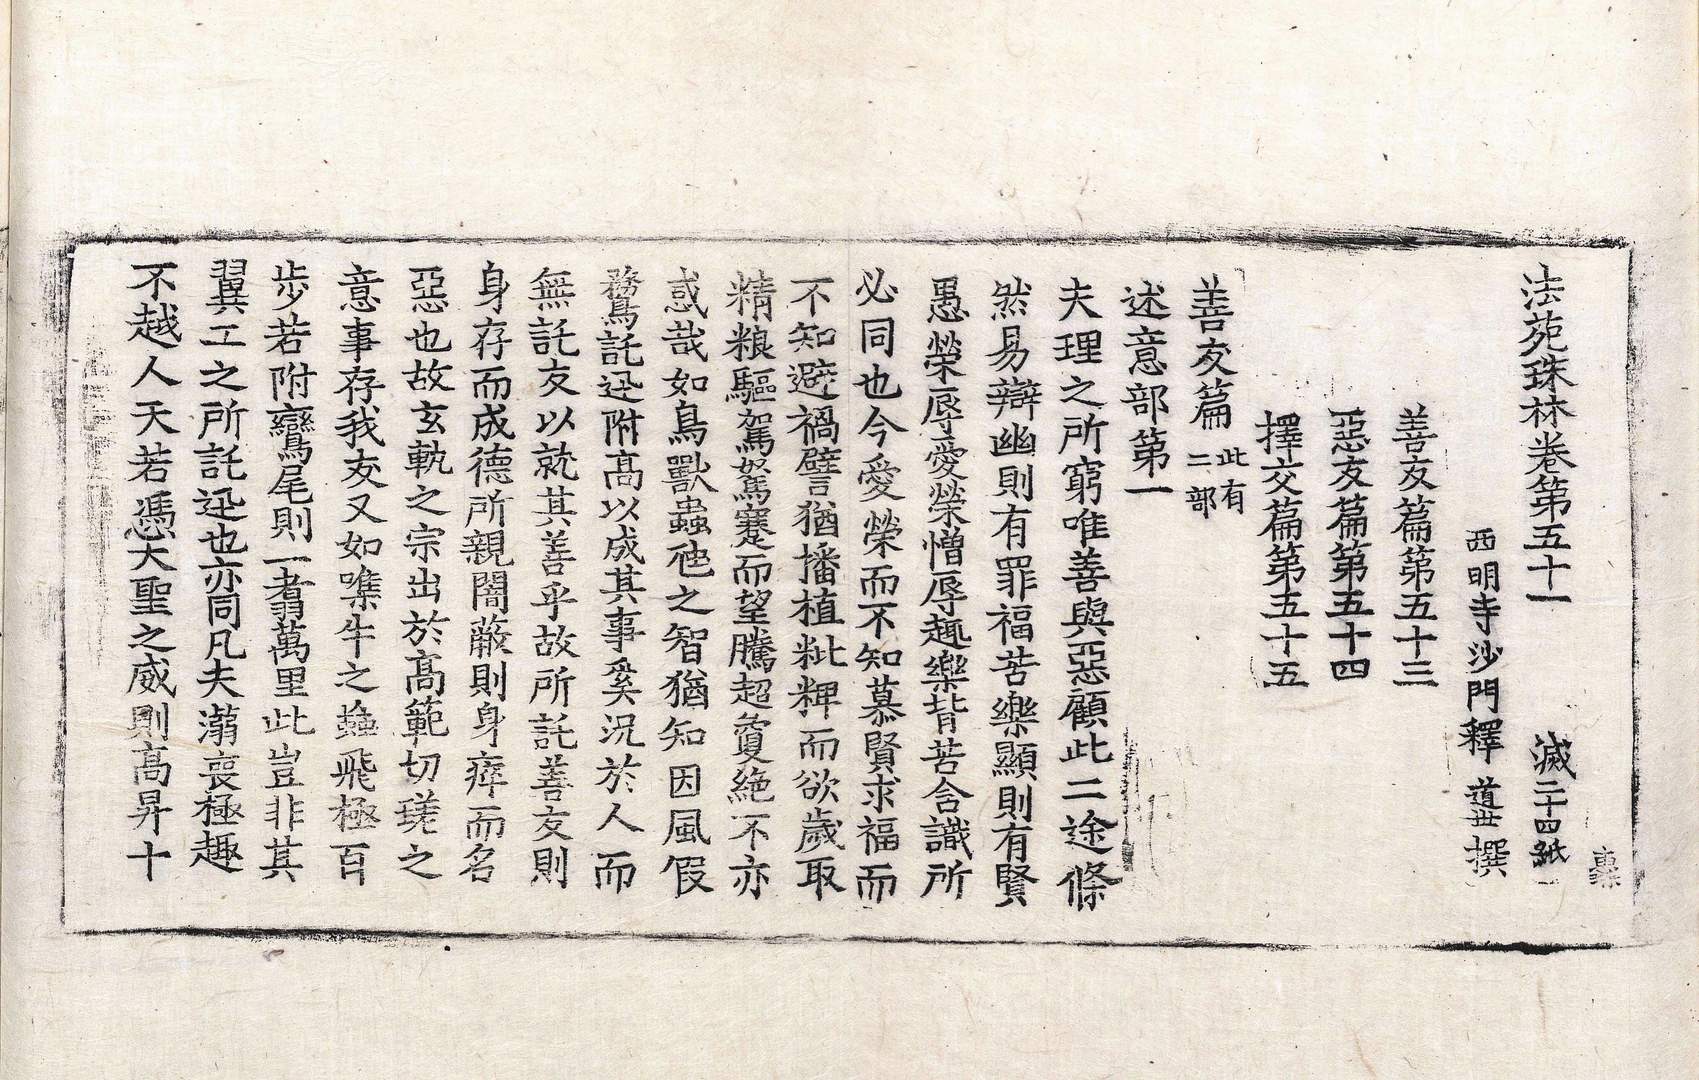 法苑珠林卷第五十一 滅 二十四紙
西明寺沙門釋 道世 撰
善友篇第五十三
惡友篇第五十四
擇交篇第五十五
善友篇 此有二部
述意部第一
夫理之所窮唯善與惡顧此二途條
然易辯幽則有罪福苦樂顯則有賢
愚榮辱愛榮憎辱趣樂背苦含識所
必同也今愛榮而不知慕賢求福而
不知避禍譬猶播植粃稗而欲歲取
精粮驅駕駑蹇而望騰超夐絕不亦
惑哉如鳥獸蟲虵之智猶知因風假
霧託迅附高以成其事奚況於人而
無託友以就其善乎故所託善友則
身存而成德所親闇蔽則身瘁而名
惡也故玄軌之宗出於高範切瑳之
意事存我友又如噍牛之䖟飛極百
步若附鸞尾則一翥萬里此豈非其
翼工之所託迅也亦同凡夫溺喪極趣
不越人天若憑大聖之威則高昇十